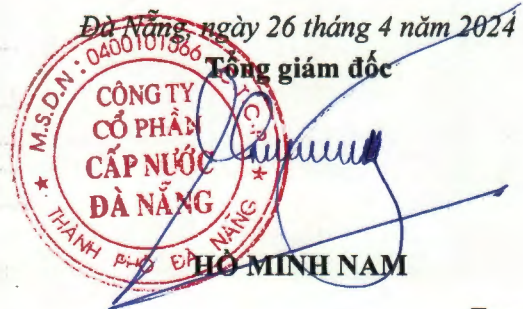 Đà Nẵng, ngày 26 tháng 4 năm 2024
Tổng giám đốc
M.S.D.N: 0400101366 C.T.C.P
CÔNG TY
CỔ PHẦN
CẤP NƯỚC
ĐÀ NẴNG
★ THÀNH PHỐ ĐÀ NẴNG ★
HỒ MINH NAM